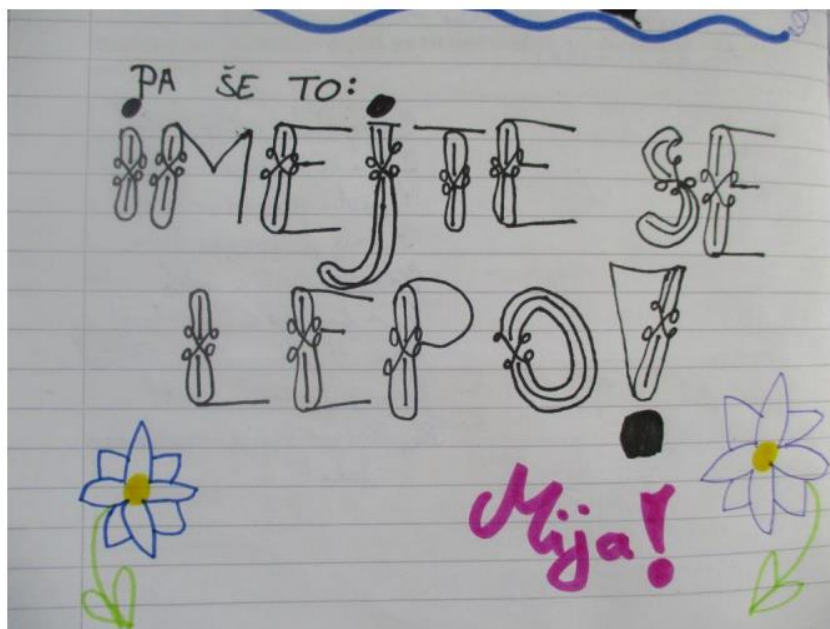 PA ŠE TO:
iMEjTE SE
LEPO!
Mija!